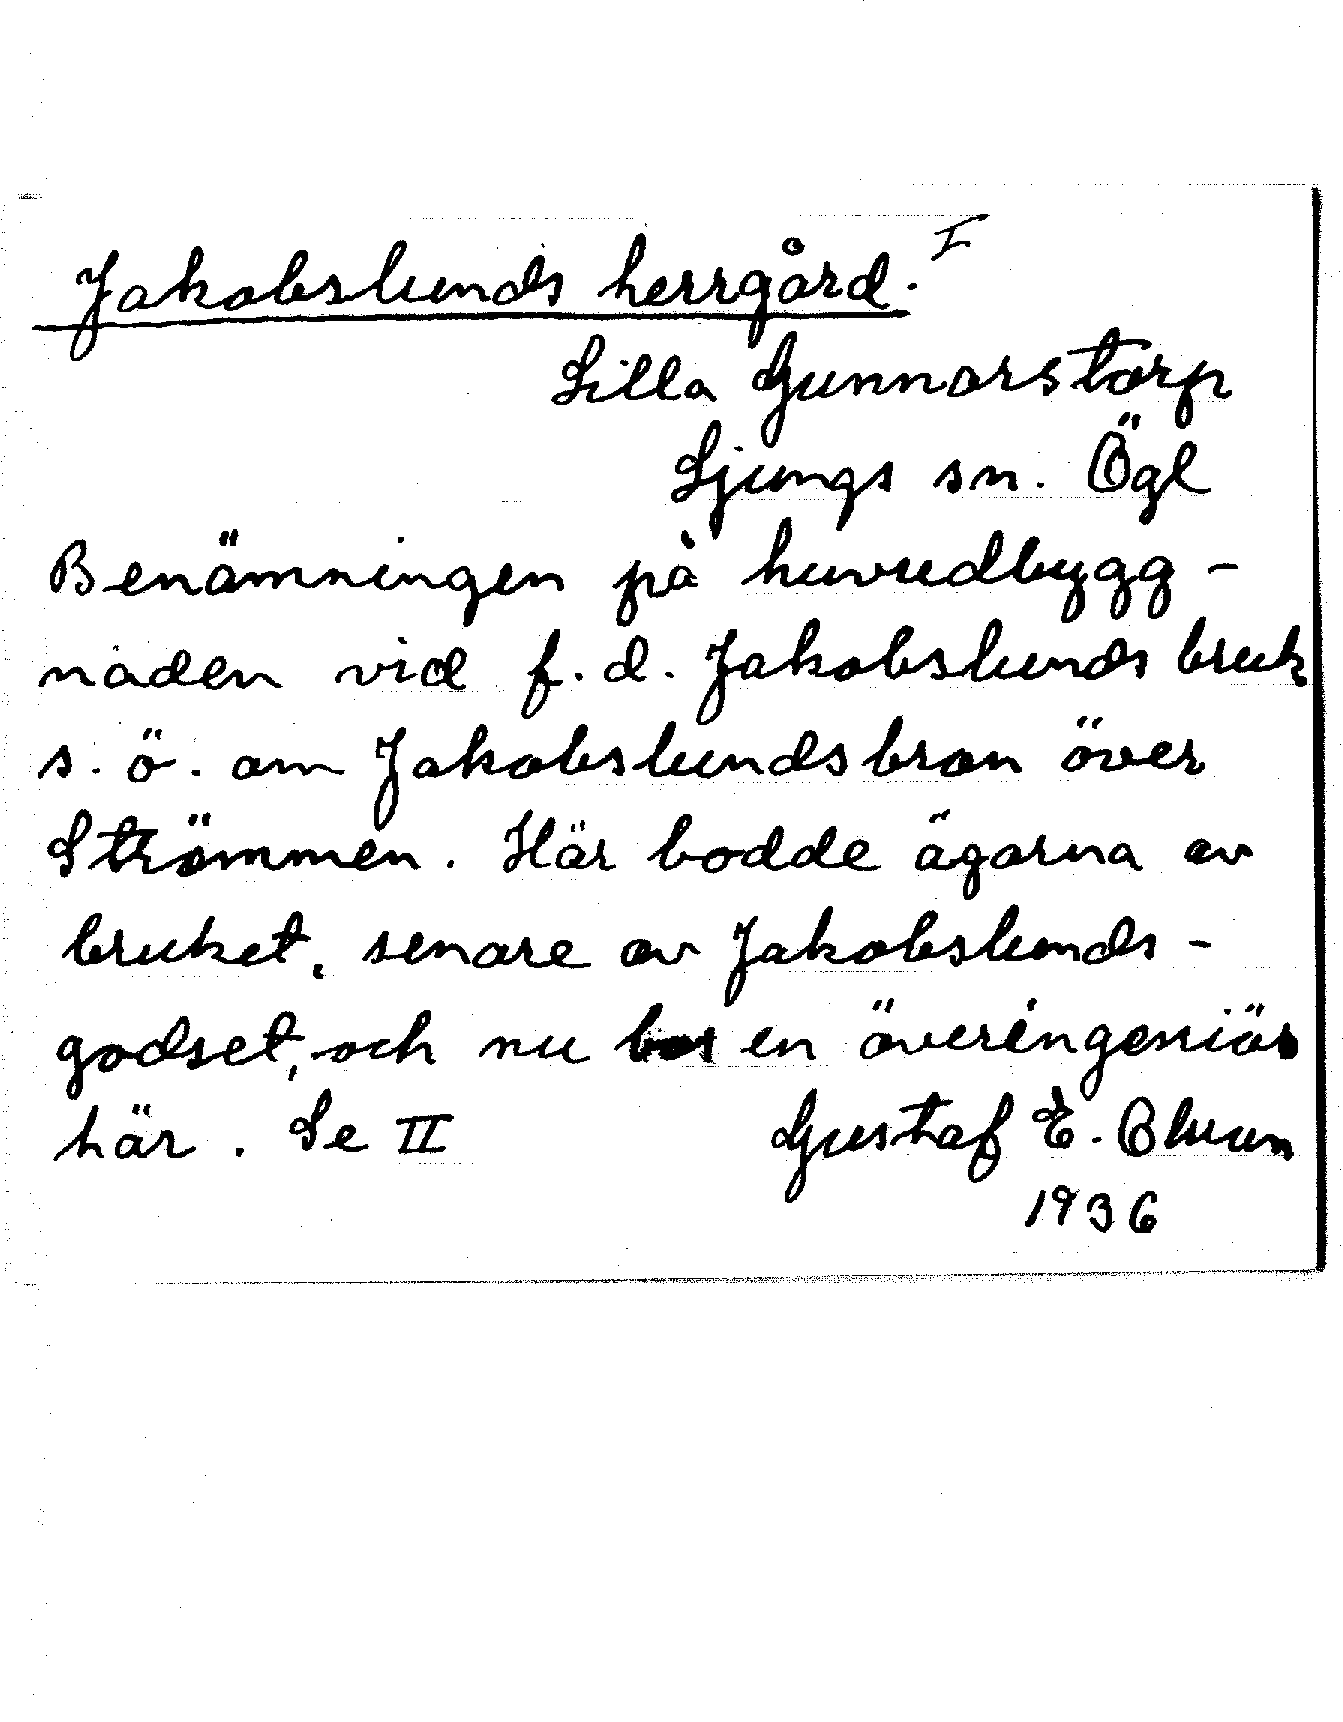 Jakobslunds herrgård. I
Lilla Gunnarstorp
Ljungs sn. Ögl
Benämningen på huvudbygg-
naden vid f.d. Jakobslunds bruk
s.ö. om Jakobslundsbron över
Strömmen. Här bodde ägarna av
bruket, senare av Jakobslunds-
godset, och nu bor en överingeniör
här. Se II Gustaf E. Bluun
1936